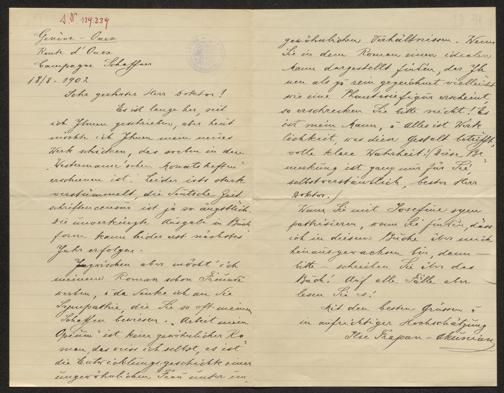 J. N 129.239
Genève – Onex
Route d'Onex
Campagne Schaffner
18/8 – 1902
Sehr geehrter Herr Doktor!
Es ist lange her, seit
ich Ihnen geschrieben, aber heut
möcht ich Ihnen mein neues
Werk schicken, das soeben in den
„Westermann'schen Monatsheften"
erschienen ist. Leider ists stark
verstümmelt, die deutsche Zeit-
schriftencensur ist ja so ängstlich,
die unverkürzte Ausgabe in Buch-
form kann leider erst nächstes
Jahr erfolgen.
Inzwischen aber möcht' ich
meinem Roman schon Freunde
werben, & da denke ich an die
Sympathie, die Sie so oft meinem
Schaffen bewiesen. „Arbeit mein
Opium" ist kein gewöhnlicher Ro-
man, das weiss ich selbst, es ist
die Entwicklungsgeschichte einer
ungewöhnlichen Frau unter un-
gewöhnlichen Verhältnissen. Wenn
Sie in dem Roman einen idealen
Mann dargestellt finden, der Ih-
nen als zu rein gezeichnet vielleicht
wie eine Phantasiefigur erscheint,
so erschrecken Sie bitte nicht! Es
ist mein Mann, & Alles ist Wirk-
lichkeit, was diese Gestalt betrifft,
volle klare Wahrheit! (Diese Be-
merkung ist ganz nur für Sie,
selbstverständlich, bester Herr
Doktor.)
Wenn Sie mit Josefine sym-
pathisieren, wenn Sie finden, dass
ich in diesem Buche über mich
hinausgewachsen bin, dann –
bitte – schreiben Sie über das
Buch! Auf alle Fälle aber
lesen Sie es!
Mit den besten Grüssen &
in aufrichtiger Hochschätzung
Ilse Frapan – Akunian